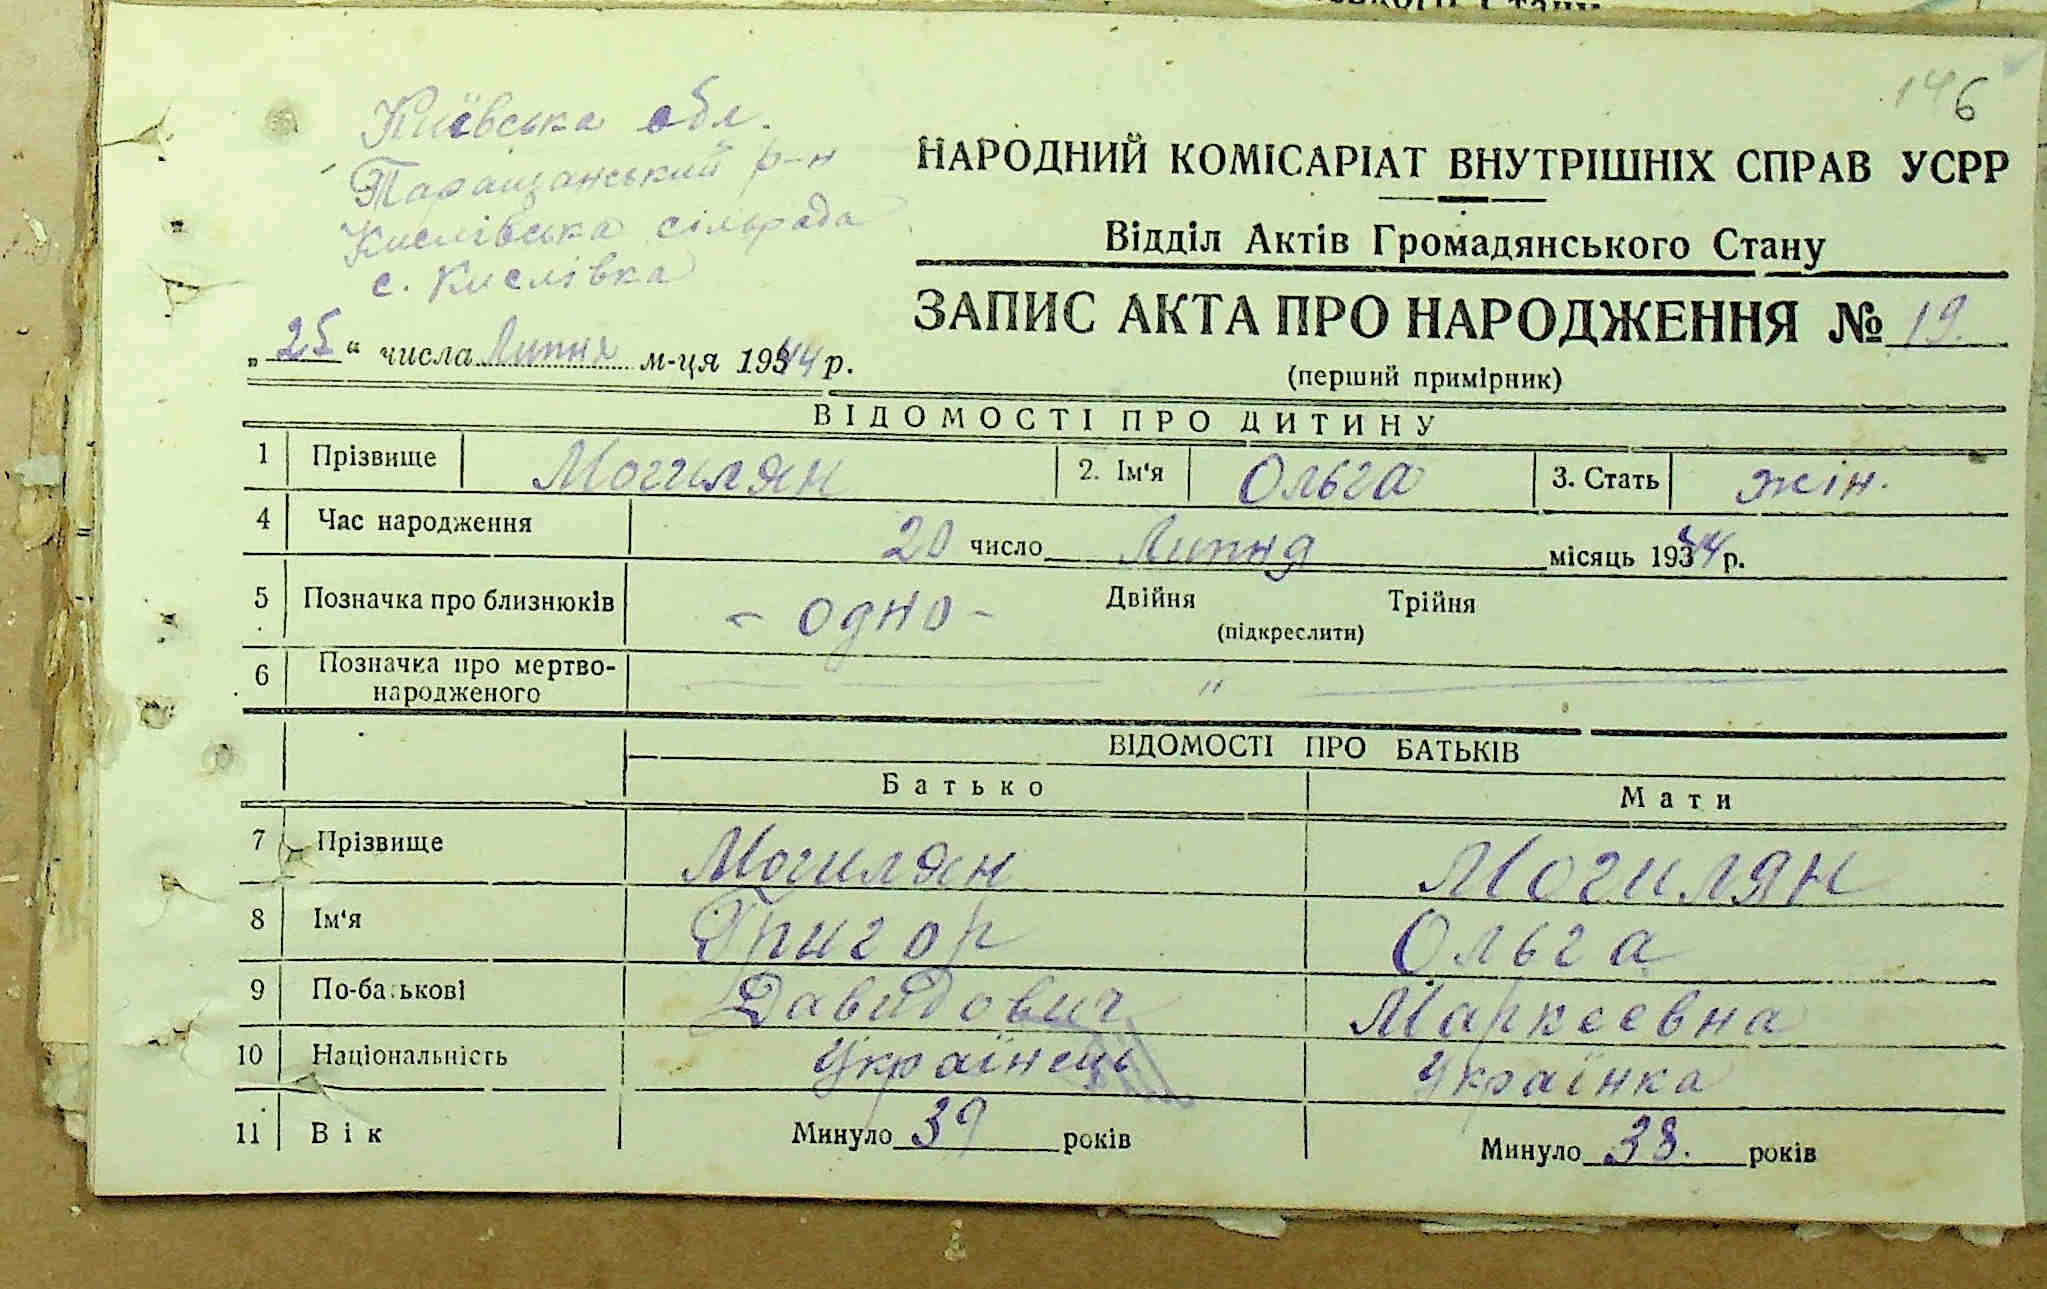 146
Київська обл.
Таращанський р-н
Кислівська сільрада
с. Кислівка
НАРОДНИЙ КОМІСАРІАТ ВНУТРІШНІХ СПРАВ УСРР
Відділ Актів Громадянського Стану
ЗАПИС АКТА ПРО НАРОДЖЕННЯ № 19.
(перший примірник)
„25“ числа Липня м-ця 1944 р.
ВІДОМОСТІ ПРО ДИТИНУ
1 Прізвище Могилян 2. Ім'я Ольга 3. Стать жін.
4 Час народження 20 число Липня місяць 1944 р.
5 Позначка про близнюків - одно - Двійня Трійня
(підкреслити)
6 Позначка про мертво-
народженого — " —
ВІДОМОСТІ ПРО БАТЬКІВ
Батько Мати
7 Прізвище Могилян Могилян
8 Ім'я Григор Ольга
9 По-батькові Давидович Маркеевна
10 Національність Українець Українка
11 Вік Минуло 39 років Минуло 38. років